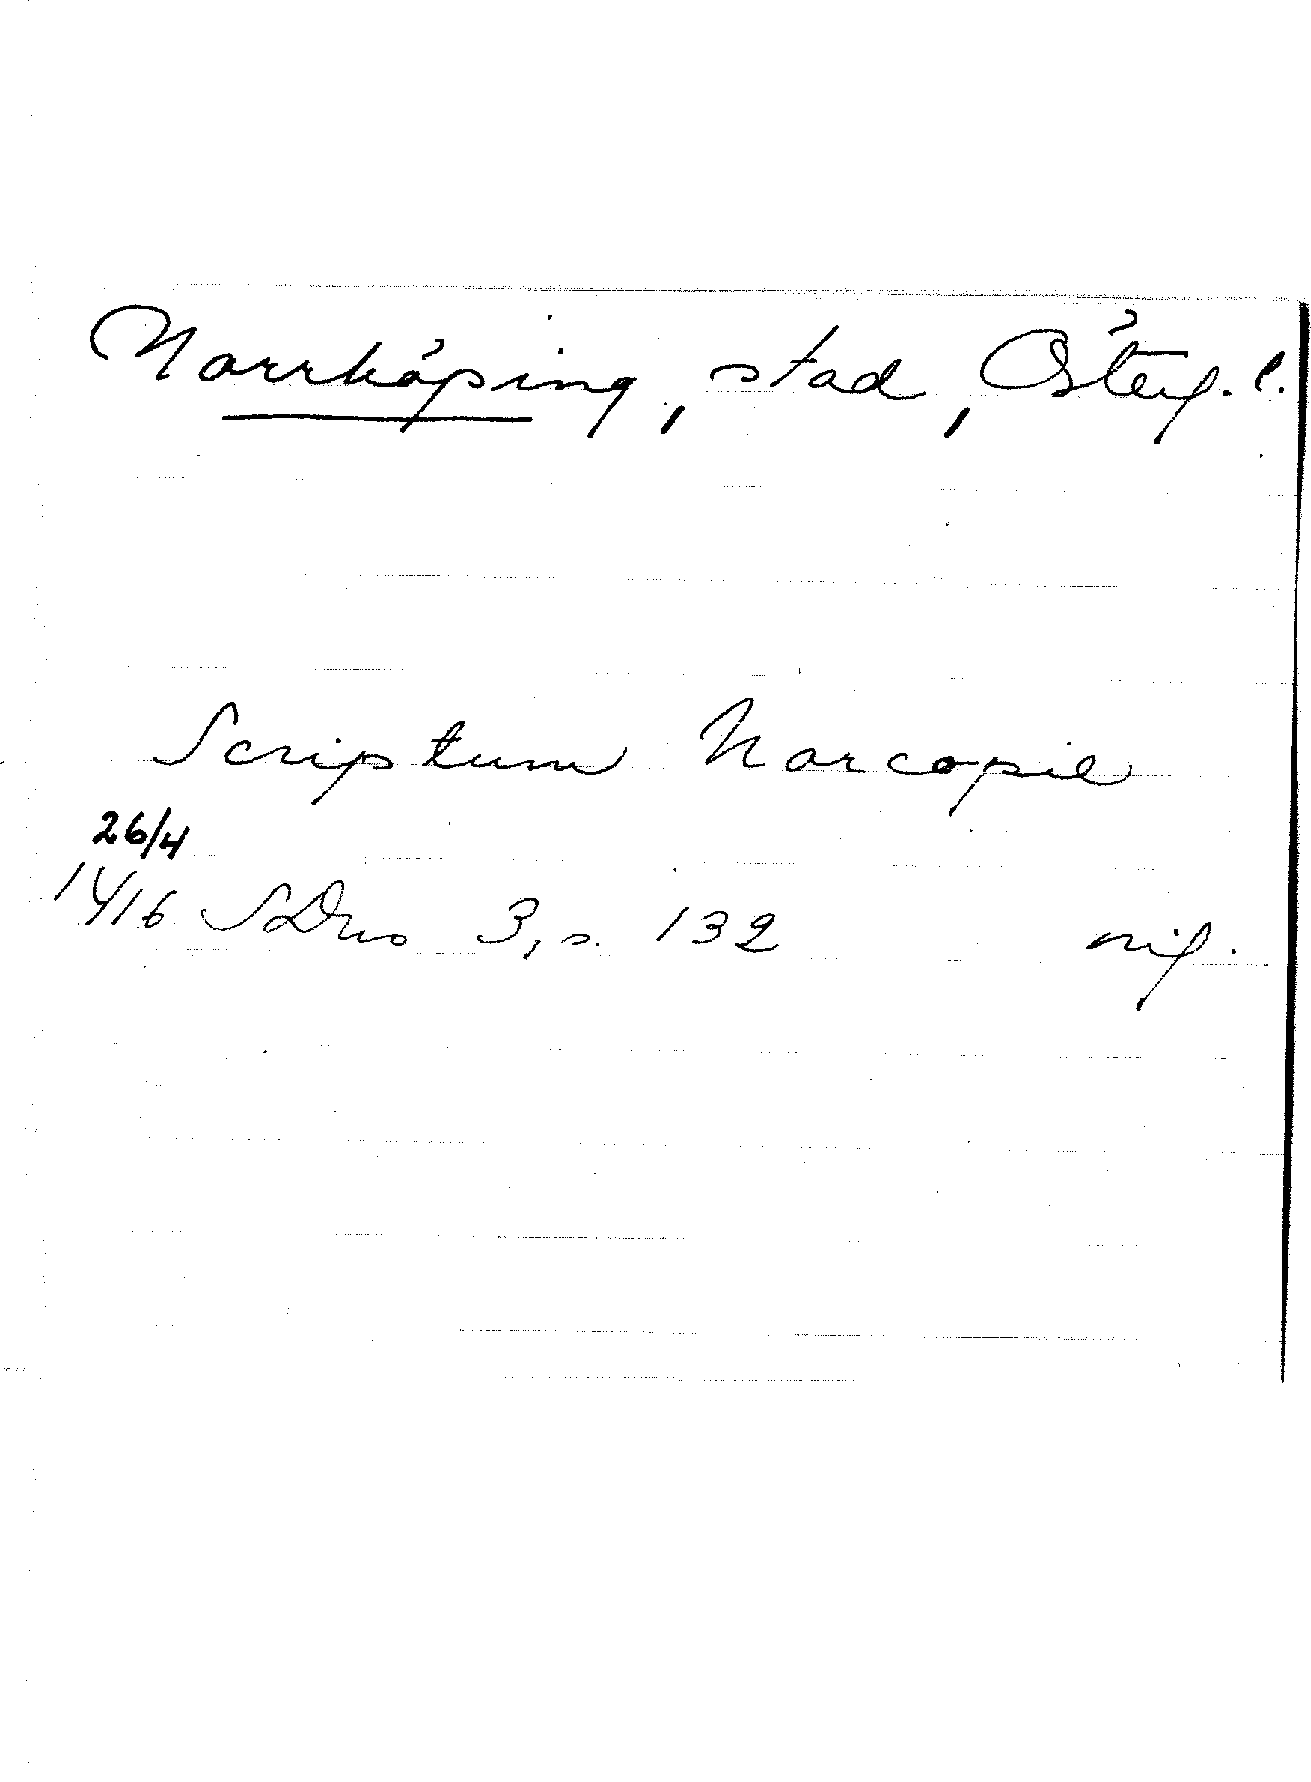 Norrköping, stad, Österg. l.
Scriptum Norcopie
26/4
1416 SDns 3, s. 132 orig.